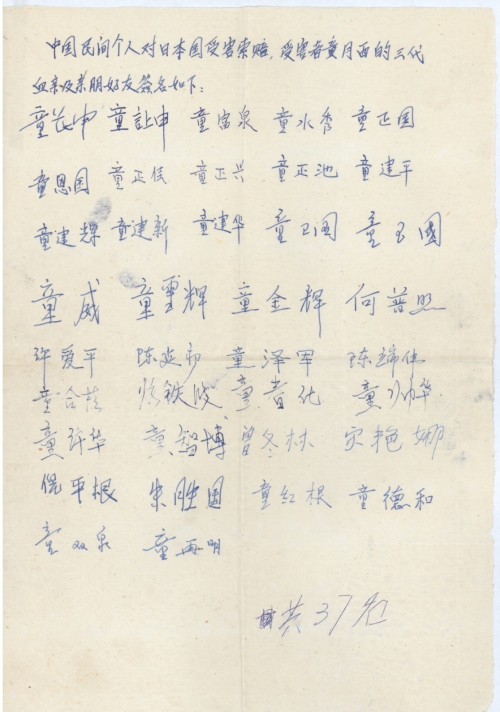 中国民间个人对日本国受害索赔,受害者童月西的三代
血亲及亲朋好友签名如下:
童长申 童让申 童富泉 童水秀 童正国
童恩国 童正民 童正兴 童正池 童建平
童建辉 童建新 童建华 童卫国 童玉國
童威 童雲辉 童金辉 何普照
许爱平 陈 童泽 陈瑞
童 铁波 童 童
童许华 童智博 曾冬林 宋艳娜
倪平根 朱胜国 童红根 童德和
童双泉 童再明
共37名